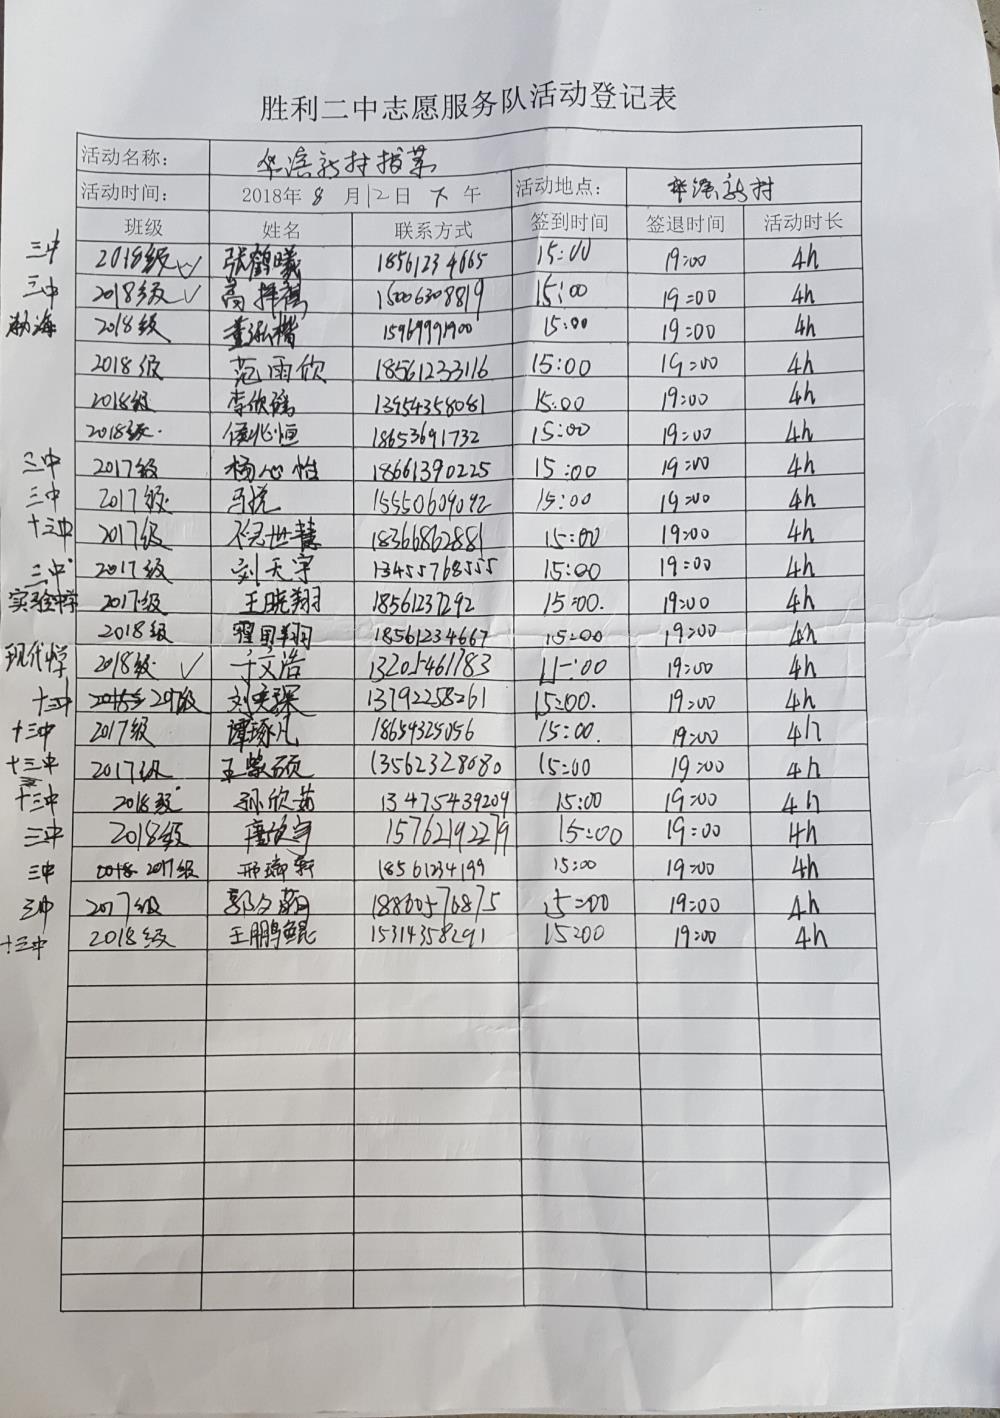 胜利二中志愿服务队活动登记表
活动名称： 华滨新村拔草
活动时间： 2018年 8 月 12 日 下 午 活动地点： 华滨新村
班级 姓名 联系方式 签到时间 签退时间 活动时长
三中 2018级 ✓ 张鹤曦 18561234665 15:00 19:00 4h
三中 2018级 ✓ 高 15006308819 15:00 19:00 4h
渤海 2018级 董泓楷 15969991900 15:00 19:00 4h
2018级 范雨欣 18561233116 15:00 19:00 4h
2018级 李欣瑶 13954358081 15:00 19:00 4h
2018级. 侯兆恒 18653691732 15:00 19:00 4h
三中 2017级 杨心怡 18661390225 15:00 19:00 4h
三中 2017级. 马悦 15550609092 15:00 19:00 4h
十三中 2017级 世慧 18366862881 15:00 19:00 4h
三中 2017级 刘天宇 13455768555 15:00 19:00 4h
实验中学 2017级 王晓翔 18561237292 15:00. 19:00 4h
2018级 翟贝翔 18561234667 15:00 19:00 4h
现代中学 2018级. ✓ 于文浩 13205461783 15:00 19:00 4h
十三中 2017级 刘奕琛 13792258261 15:00. 19:00 4h
十三中 2017级 谭琢凡 18654325056 15:00. 19:00 4h
十三中 2017级 王紫硕 13562328080 15:00 19:00 4h
十三中 2018级 孙欣茹 13475439209 15:00 19:00 4h
三中 2018级 唐欣宇 15762192279 15:00 19:00 4h
三中 2018 2017级 邢瑜轩 18561234199 15:00 19:00 4h
三中 2017级 郭文 18860576875 15:00 19:00 4h
十三中 2018级 王鹏鲲 15314358291 15:00 19:00 4h